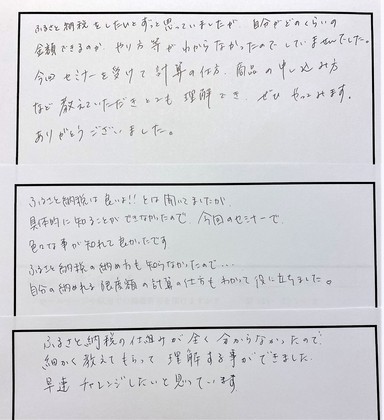 ふるさと納税をしたいとずっと思っていましたが、自分がどのくらいの
金額できるのか、やり方等がわからなかったのでしていませんでした。
今回セミナーを受けて計算の仕方、商品の申し込み方
など教えていただきとても理解でき、ぜひやってみます。
ありがとうございました。
ふるさと納税は良いよ!!とは聞いてましたが、
具体的に知ることができなかったので、今回のセミナーで、
色々な事が知れて良かったです
ふるさと納税の納め方も知らなかったので…
自分の納めれる限度額の計算の仕方もわかって役に立ちました。
ふるさと納税の仕組みが全く分からなかったので、
細かく教えてもらって理解する事ができました。
早速チャレンジしたいと思っています